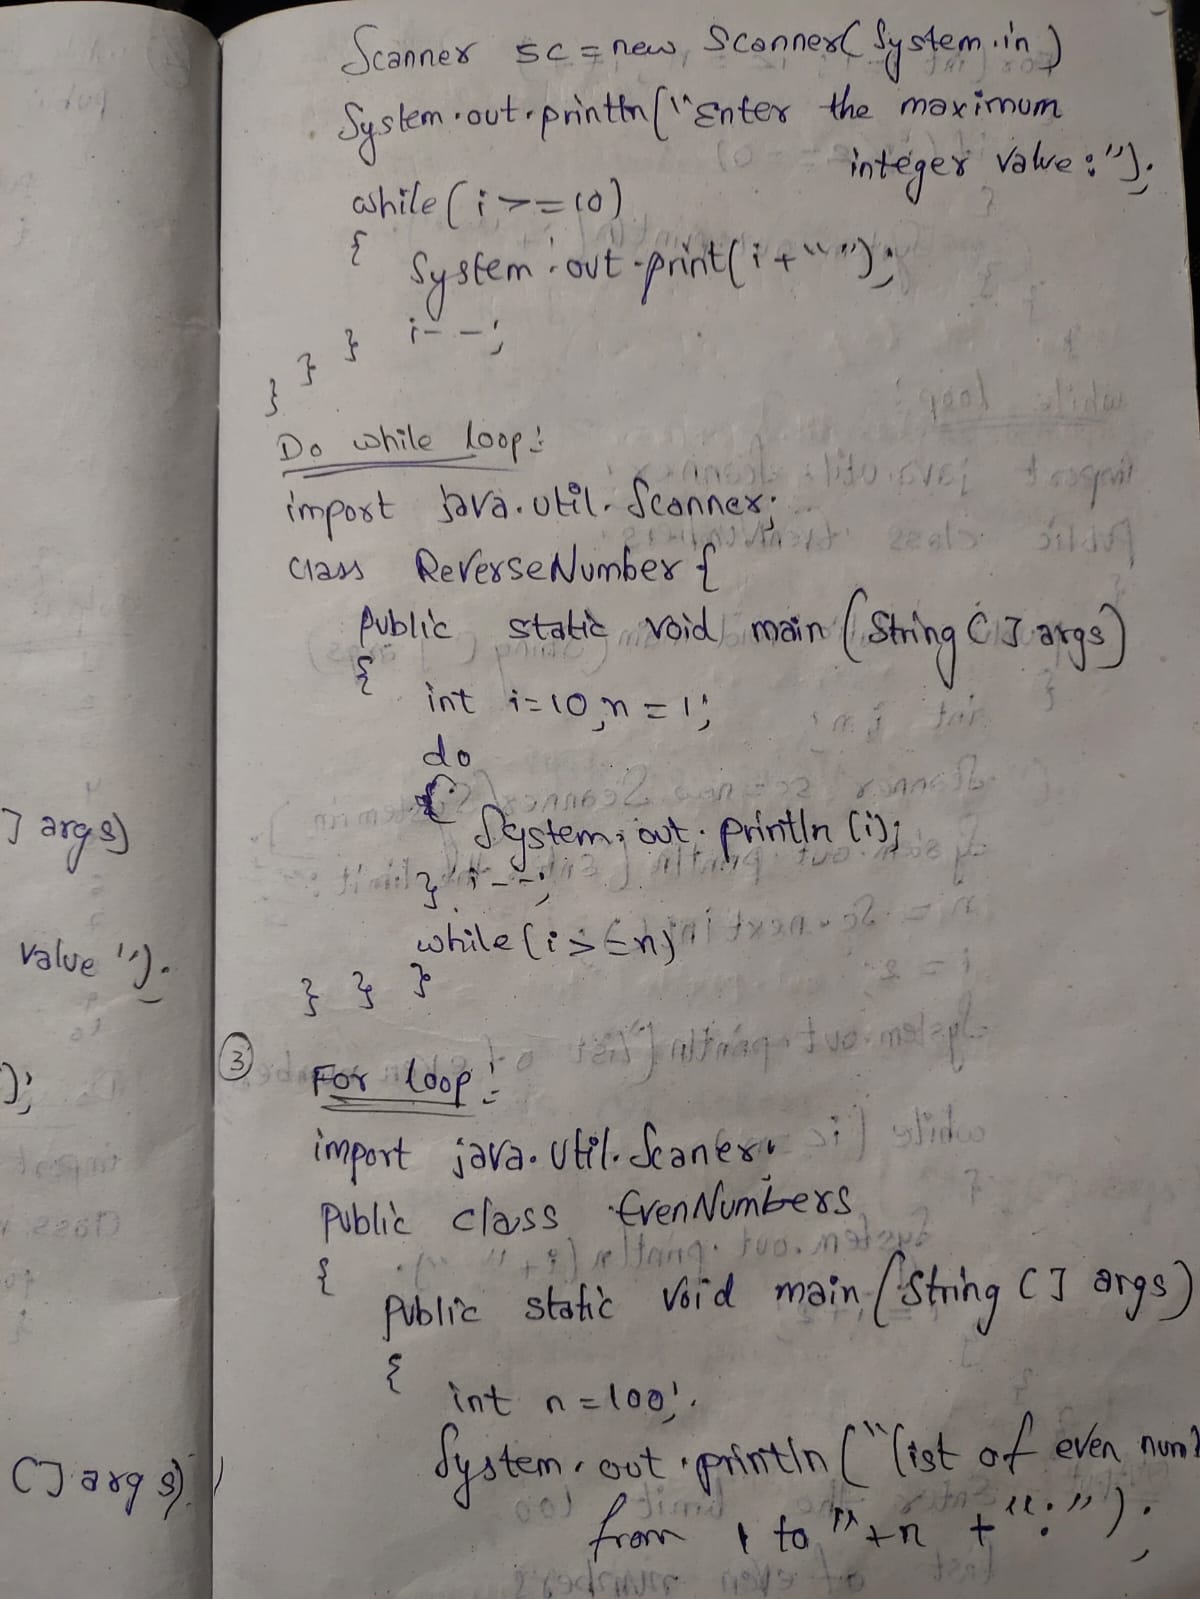 Scanner sc = new Scanner(System.in)
System.out.println("Enter the maximum
integer value:");
while(i>=10)
{
System.out.print(i+" ");
i--;
}
}
}
Do while loop:
import java.util.Scanner;
class ReverseNumber {
public static void main (String [] args)
{
int i=10,n=1;
do
{
System.out.println(i);
} i--;
while(i>=n)
} } }
3
For loop:
import java.util.Scaner.
Public class EvenNumbers
{
public static void main (String [] args)
{
int n=100;
System.out.println("list of even num
from 1 to "+n +":");
] args)
value ");
);
[] args)